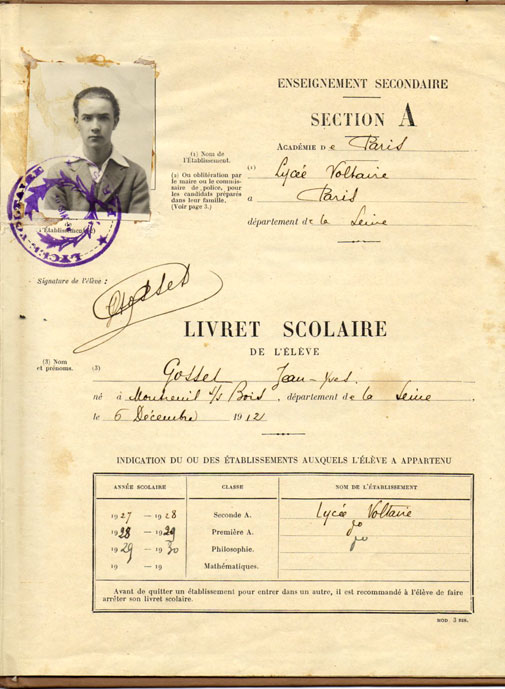 ENSEIGNEMENT SECONDAIRE
SECTION A
ACADÉMIE De Paris
(1) Nom de
l'Établissement.
(1) Lycée Voltaire
(2) Ou oblitération par
le maire ou le commis-
saire de police, pour
les candidats préparés
dans leur famille.
(Voir page 3.)
à Paris
département de la Seine
LYCÉE VOLTAIRE
l'Établissement
Signature de l'élève :
Gosset
LIVRET SCOLAIRE
DE L'ÉLÈVE
(3) Nom
et prénoms.
(3) Gosset Jean-Yves
né à Montreuil s/s Bois, département de la Seine
le 6 Décembre 1912
INDICATION DU OU DES ÉTABLISSEMENTS AUXQUELS L'ÉLÈVE A APPARTENU
ANNÉE SCOLAIRE CLASSE NOM DE L'ÉTABLISSEMENT
1927 — 1928 Seconde A. Lycée Voltaire
1928 — 1929 Première A.
1929 — 1930 Philosophie.
19 — 19 Mathématiques.
Avant de quitter un établissement pour entrer dans un autre, il est recommandé à l'élève de faire
arrêter son livret scolaire.
MOD 2 BIS.